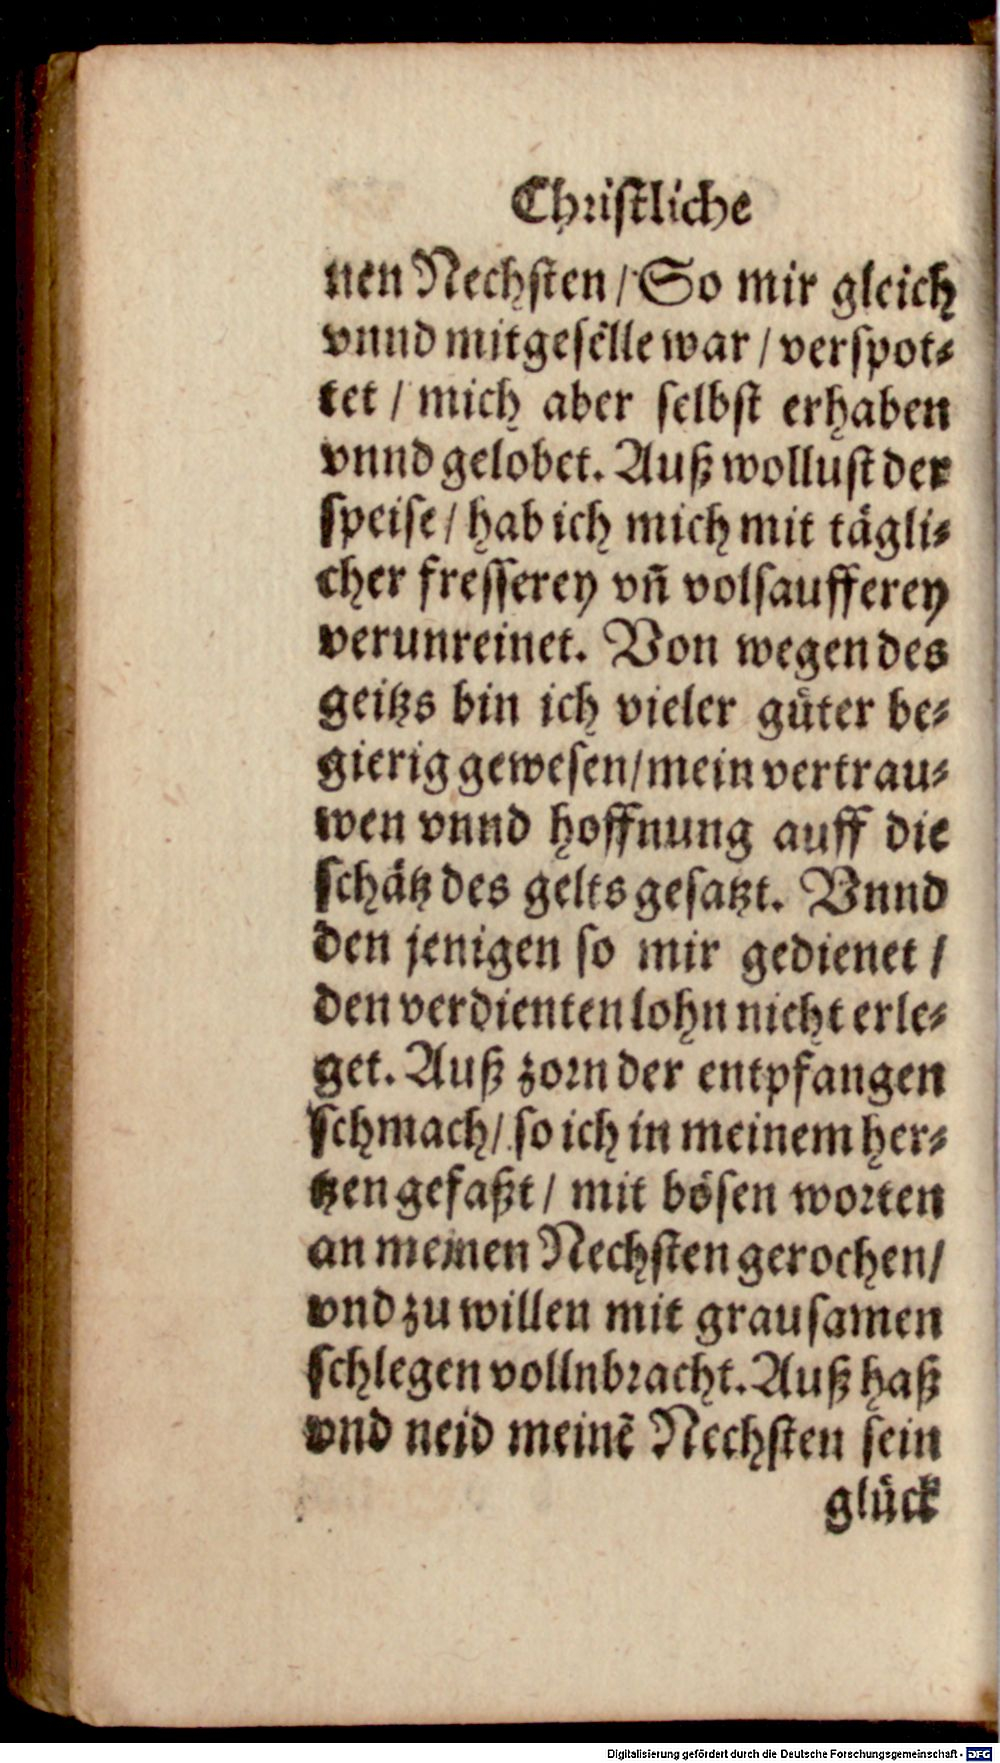 Christliche
nen Nechsten / So mir gleich
vnnd mitgeselle war / verspot⸗
tet / mich aber selbst erhaben
vnnd gelobet. Auß wollust der
speise / hab ich mich mit tägli⸗
cher fresserey vn̄ volsaufferey
verunreinet. Von wegen des
geitzs bin ich vieler güter be⸗
gierig gewesen / mein vertrau⸗
wen vnnd hoffnung auff die
schätz des gelts gesatzt. Vnnd
den jenigen so mir gedienet /
den verdienten lohn nicht erle⸗
get. Auß zorn der entpfangen
schmach / so ich in meinem her⸗
tzen gefaßt / mit bösen worten
an meinen Nechsten gerochen /
vnd zu willen mit grausamen
schlegen vollnbracht. Auß haß
vnd neid meinē Nechsten sein
glück
Digitalisierung gefördert durch die Deutsche Forschungsgemeinschaft - DFG